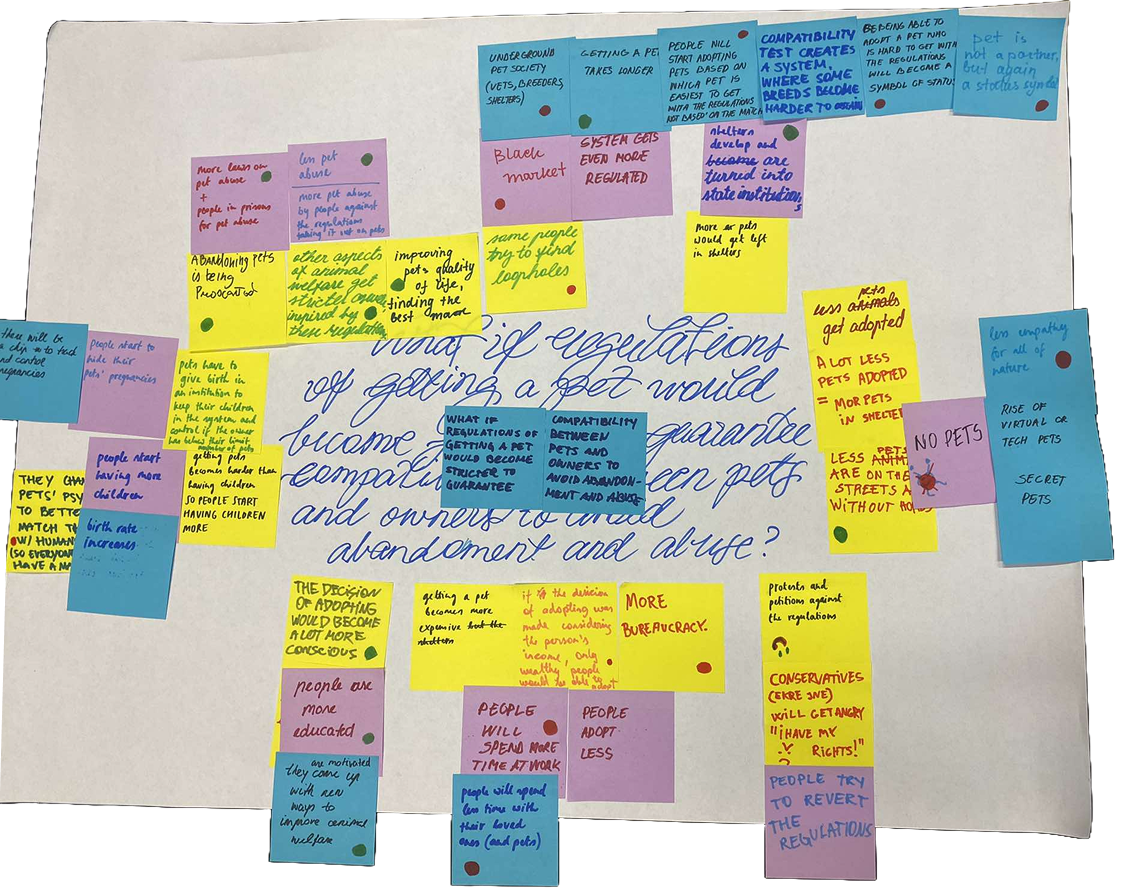 UNDERGROUND
PET SOCIETY
(VETS, BREEDERS,
SHELTERS)
GETTING A PET
TAKES LONGER
PEOPLE WILL
START ADOPTING
PETS BASED ON
WHICH PET IS
EASIEST TO GET
WITH THE REGULATIONS
NOT BASED ON THE MATCH
COMPATIBILITY
TEST CREATES
A SYSTEM,
WHERE SOME
BREEDS BECOME
HARDER TO
BEING ABLE TO
ADOPT A PET WHO
IS HARD TO GET WITH
THE REGULATIONS
WILL BECOME A
SYMBOL OF STATUS
pet is
not a partner,
but again
a status symbol
more laws on
pet abuse
+
people in prisons
for pet abuse
less pet
abuse
more pet abuse
by people against
the regulations
taking it out on pets
Black
market
SYSTEM GETS
EVEN MORE
REGULATED
shelters
develop and
become are
turned into
state institutions
ABANDONING PETS
is being
other aspects
of animal
welfare get
stricter
inspired by
these regulations
improving
pets quality
of life,
finding the
best
some people
try to find
loopholes
more pets
would get left
in shelters
there will be
a chip to track
and control
pregnancies
people start to
hide their
pets' pregnancies
pets have to
give birth in
an institution to
keep their children
in the system and
control if the owner
has below their limit
number of pets
people start
having more
children
getting pets
becomes harder than
having children
SO PEOPLE START
HAVING CHILDREN
MORE
THEY
PETS' PSY
TO BETTE
MATCH TH
W/ HUMAN
(SO EVERYON
HAVE A
birth rate
increases
What if regulations
of getting a pet would
become
guarantee
compati
een pets
and owners to avoid
abandoment and abuse?
WHAT IF
REGULATIONS OF
GETTING A PET
WOULD BECOME
STRICTER TO
GUARANTEE
COMPATIBILITY
BETWEEN
PETS AND
OWNERS TO
AVOID ABANDON-
MENT AND ABUSE
pets
less animals
get adopted
A LOT LESS
PETS ADOPTED
= MOR PETS
IN SHELTE
PETS
LESS ANIM
ARE ON THE
STREETS A
WITHOUT
NO PETS
less empathy
for all of
nature
RISE OF
VIRTUAL OR
TECH PETS
SECRET
PETS
THE DECISION
OF ADOPTING
WOULD BECOME
A LOT MORE
CONSCIOUS
people are
more
educated
are motivated
they come up
with new
ways to
improve animal
welfare
getting a pet
becomes more
expensive but the
shelters
if the decision
of adopting was
made considering
the person's
income, only
wealthy people
would be able to adopt
MORE
BUREAUCRACY.
PEOPLE
WILL
SPEND MORE
TIME AT WORK
PEOPLE
ADOPT
LESS
people will spend
less time with
their loved
ones (and pets)
protests and
petitions against
the regulations
CONSERVATIVES
(EKRE JNE)
WILL GET ANGRY
"I HAVE MY
RIGHTS!"
PEOPLE TRY
TO REVERT
THE
REGULATIONS